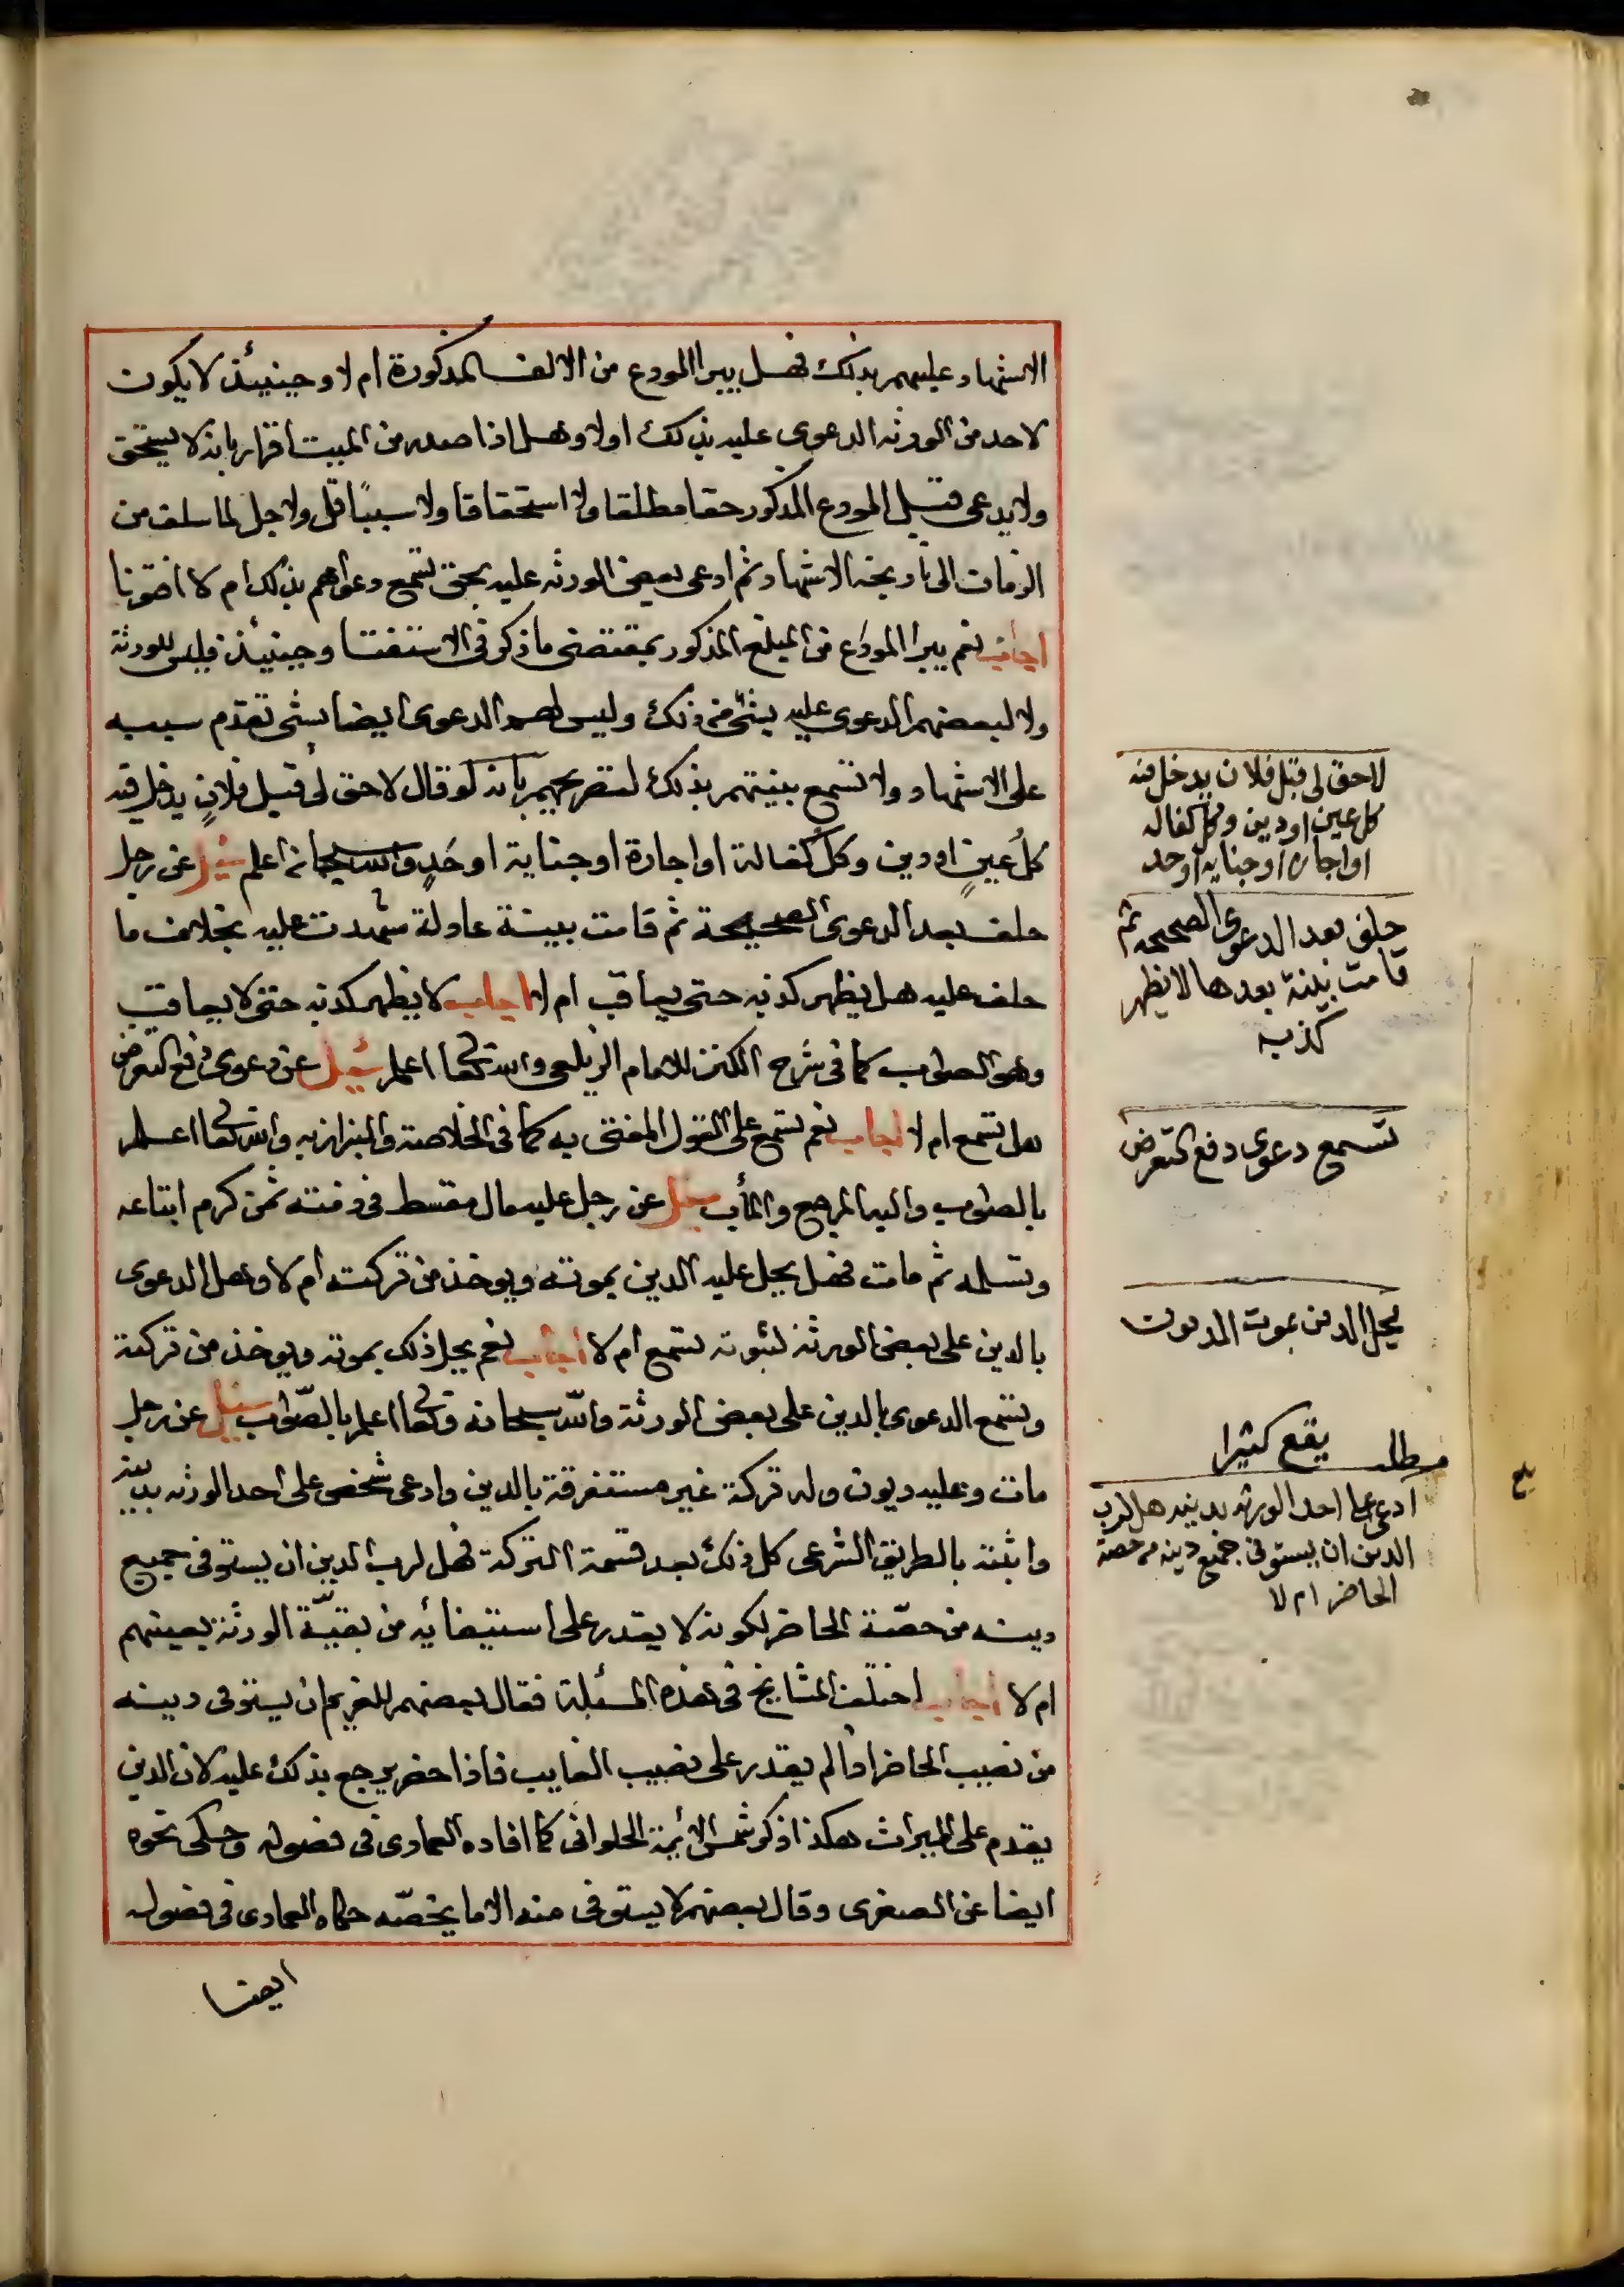 الاشهاد عليهم بذلك فهل يبرا المودع من الالف المذكورة ام لا وحينيئذ لا يكون
لاحد من الورثه الدعوى عليه بذلك اولا وهل اذا صدر من الميت اقرار بانه لا يستحق
ولا يدعى قبل المودع المذكور حقا مطلقا ولا استحقاقا ولا سببا قل ولا جل لما سلف من
الزمان الى تاريخه الاشهاد ثم ادعى بعض الورثه عليه بحق تسمع دعواهم بذلك ام لا افتونا
اجاب نعم يبرا المودع من المبلغ المذكور بمقتضى ما ذكر فى الاستفتا وحينيئذ فليس للورثة
ولا لبعضهم الدعوى عليه بشئ من ذلك وليس لهم الدعوى ايضا بشى تقدم سببه
على الاشهاد ولا تسمع بينتهم بذلك لتصريحهم بانه لو قال لا حق لى قبل فلان يدخل فيه
كل عين او دين وكل كفالة او اجارة او جناية او حد والله سبحانه اعلم سئل عن رجل
حلف بعد الدعوى الصحيحة ثم قامت بينة عادلة شهدت عليه بخلاف ما
حلف عليه هل يظهر كذبه حتى يعاقب ام لا اجاب لا يظهر كذبه حتى لا يعاقب
وهو الصواب كما فى شرح الكنز للامام الزيلعى والله تعالى اعلم سئل عن دعوى دفع التعرض
هل تسمع ام لا اجاب نعم تسمع على القول المفتى به كما فى الخلاصة والبزازيه والله تعالى اعلم
بالصواب واليه المرجع والمأب سئل عن رجل عليه مال مقسط فى ذمته ثمن كرم ابتاعه
وتسلمه ثم مات فهل يحل عليه الدين بموته ويوخذ من تركته ام لا وهل الدعوى
بالدين على بعض الورثة لثبوته تسمع ام لا اجاب نعم يحل ذلك بموته ويوخذ من تركته
وتسمع الدعوى بالدين على بعض الورثة والله سبحانه وتعالى اعلم بالصواب سئل عن رجل
مات وعليه ديون وله تركة غير مستغرقة بالدين وادعى شخص على احد الورثه بدينه
واثبته بالطريق الشرعى كل ذلك بعد قسمة التركة فهل لرب الدين ان يستوفى جميع
دينه من حصة الحاضر لكونه لا يقدر على استيفائه من بقية الورثة بغيبتهم
ام لا اجاب اختلف المشايخ فى هذه المسئلة فقال بعضهم للغريم ان يستوفى دينه
من نصيب الحاضر اذا لم يقدر على نصيب الغايب فاذا حضر يرجع بذلك عليه لان الدين
يقدم على الميراث هكذا ذكر شمس الائمة الحلوانى كما افاده العمادى فى فصوله وحكى نحوه
ايضا عن الصغرى وقال بعضهم لا يستوفى منه الا ما يخصه حكاه العمادى فى فصوله
ايضا
لا حق لى قبل فلان يدخل فيه
كل عين او دين وكل كفاله
او اجاره او جنايه او حد
حلف بعد الدعوى الصحيحه ثم
قامت بينة بعدها لا يظهر
كذبه
تسمع دعوى دفع التعرض
يحل الدين بموت المديون
مطلب يقع كثيرا
ادعى على احد الورثه بدينه هل لرب
الدين ان يستوفى جميع دينه من حصة
الحاضر ام لا
بلغ